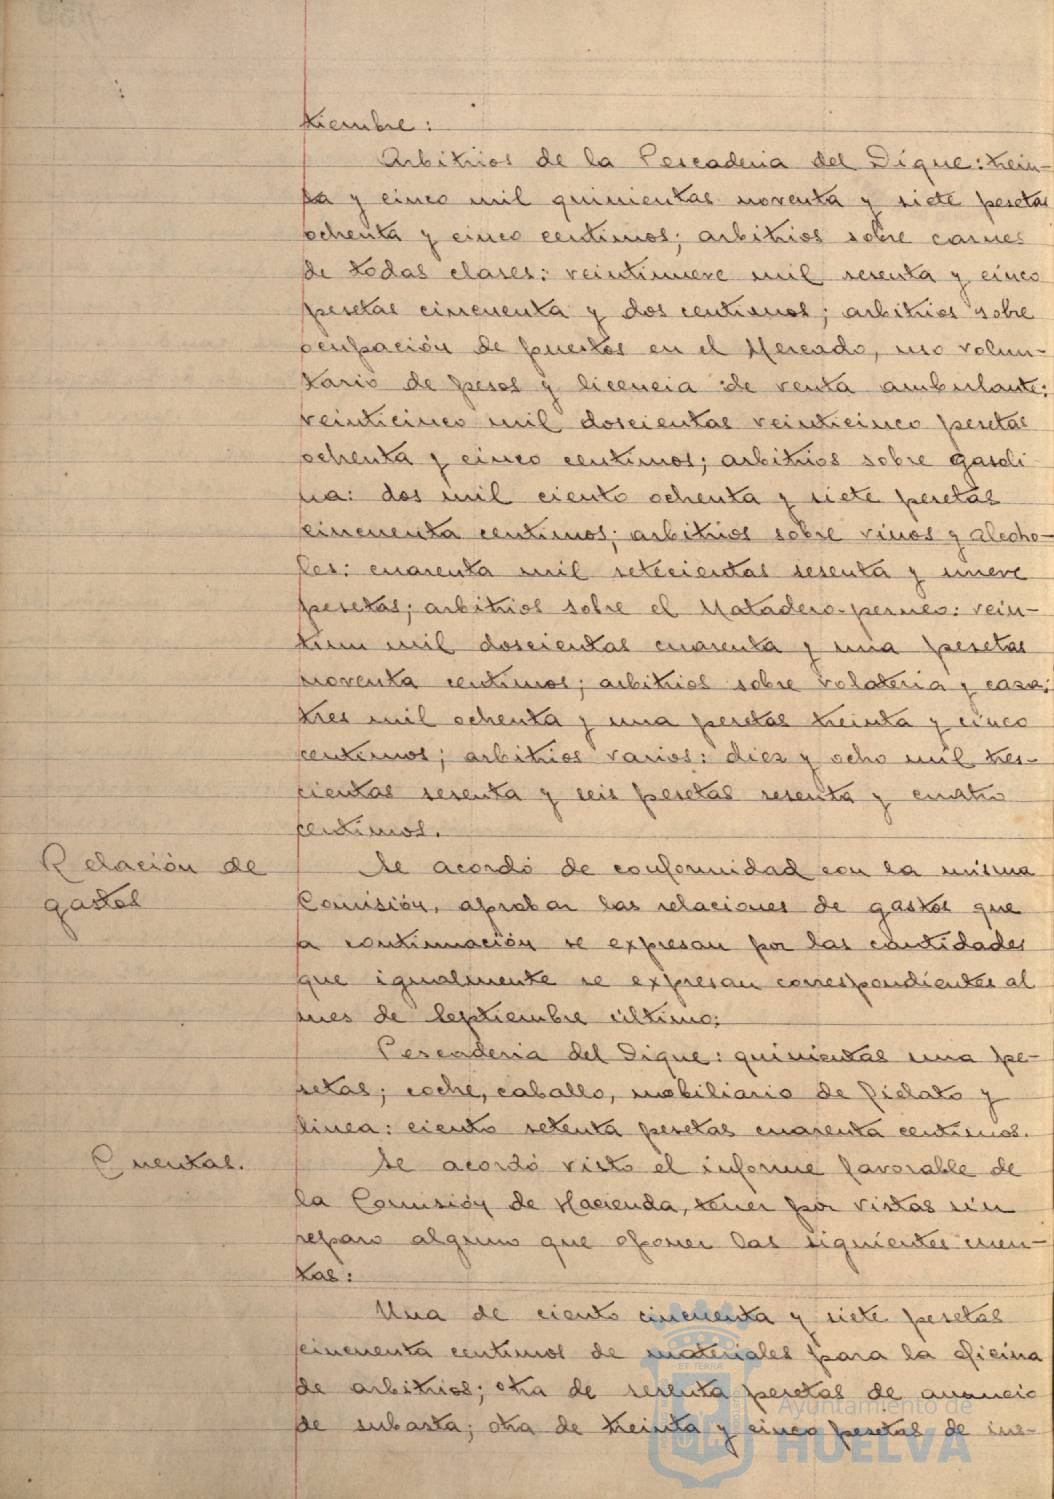 tiembre:
Arbitrios de la Pescaderia del Dique: trein-
ta y cinco mil quinientas noventa y siete pesetas
ochenta y cinco centimos; arbitrios sobre carnes
de todas clases: veintinueve mil sesenta y cinco
pesetas cincuenta y dos centimos; arbitrios sobre
ocupación de puestos en el Mercado, uso volun-
tario de pesos y licencia de venta ambulante:
veinticinco mil doscientas veinticinco pesetas
ochenta y cinco centimos; arbitrios sobre gasoli
na: dos mil ciento ochenta y siete pesetas
cincuenta centimos; arbitrios sobre vinos y alcoho-
les: cuarenta mil setecientas sesenta y nueve
pesetas; arbitrios sobre el Matadero-perneo: vein-
tiun mil doscientas cuarenta y una pesetas
noventa centimos; arbitrios sobre volateria y caza:
tres mil ochenta y una pesetas treinta y cinco
centimos; arbitrios varios: diez y ocho mil tres-
cientas sesenta y seis pesetas sesenta y cuatro
centimos.
Relación de
gastos
Se acordó de conformidad con la misma
Comisión, aprobar las relaciones de gastos que
a continuación se expresan por las cantidades
que igualmente se expresan correspondientes al
mes de Septiembre último:
Pescaderia del Dique: quinientas una pe-
setas; coche, caballo, mobiliario de Fielato y
linea: ciento setenta pesetas cuarenta centimos.
Cuentas.
Se acordó visto el informe favorable de
la Comisión de Hacienda, tener por vistas sin
reparo alguno que oponer las siguientes cuen-
tas:
Una de ciento cincuenta y siete pesetas
cincuenta centimos de materiales para la oficina
de arbitrios; otra de sesenta pesetas de anuncio
de subasta; otra de treinta y cinco pesetas de ins-
Ayuntamiento de
HUELVA